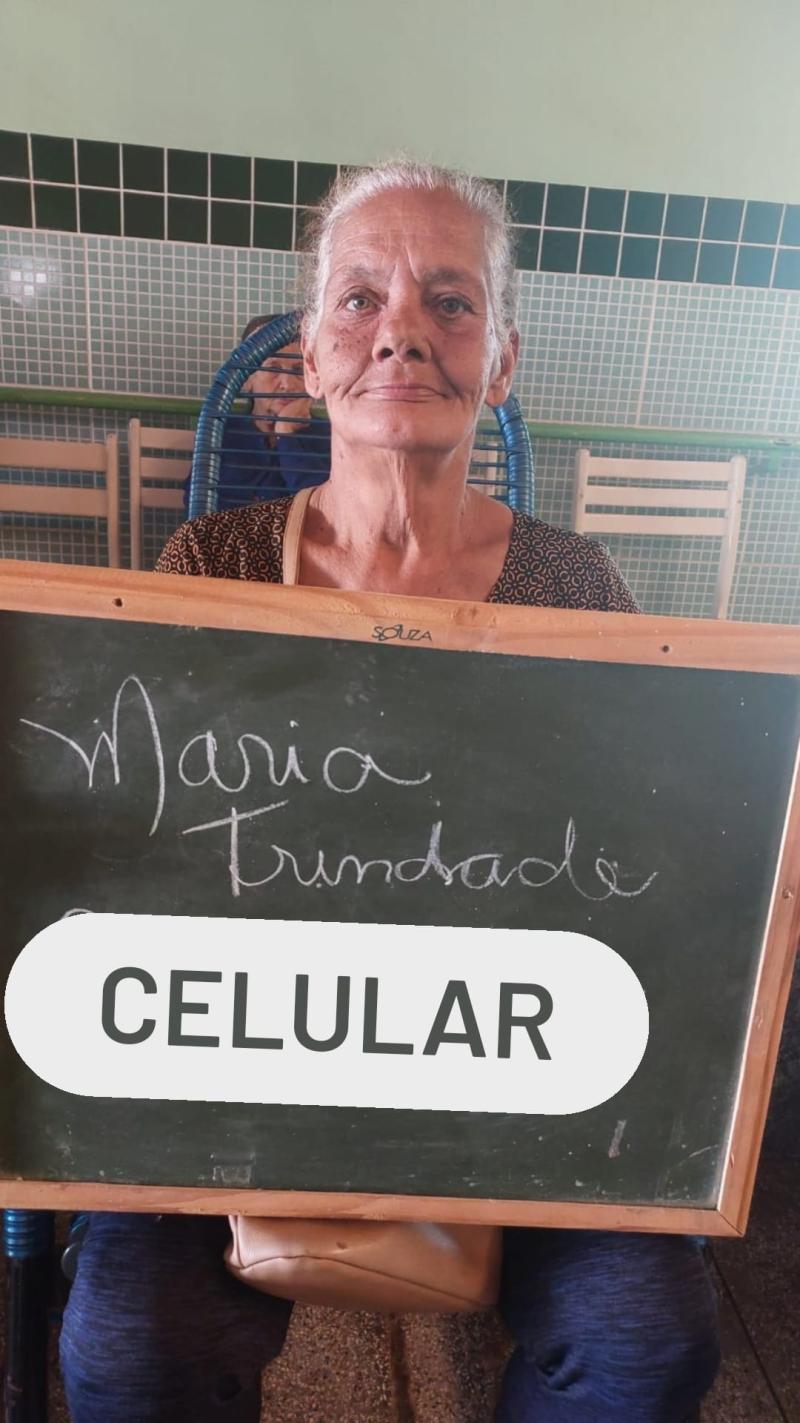 SOUZA
Maria
Trindade
CELULAR